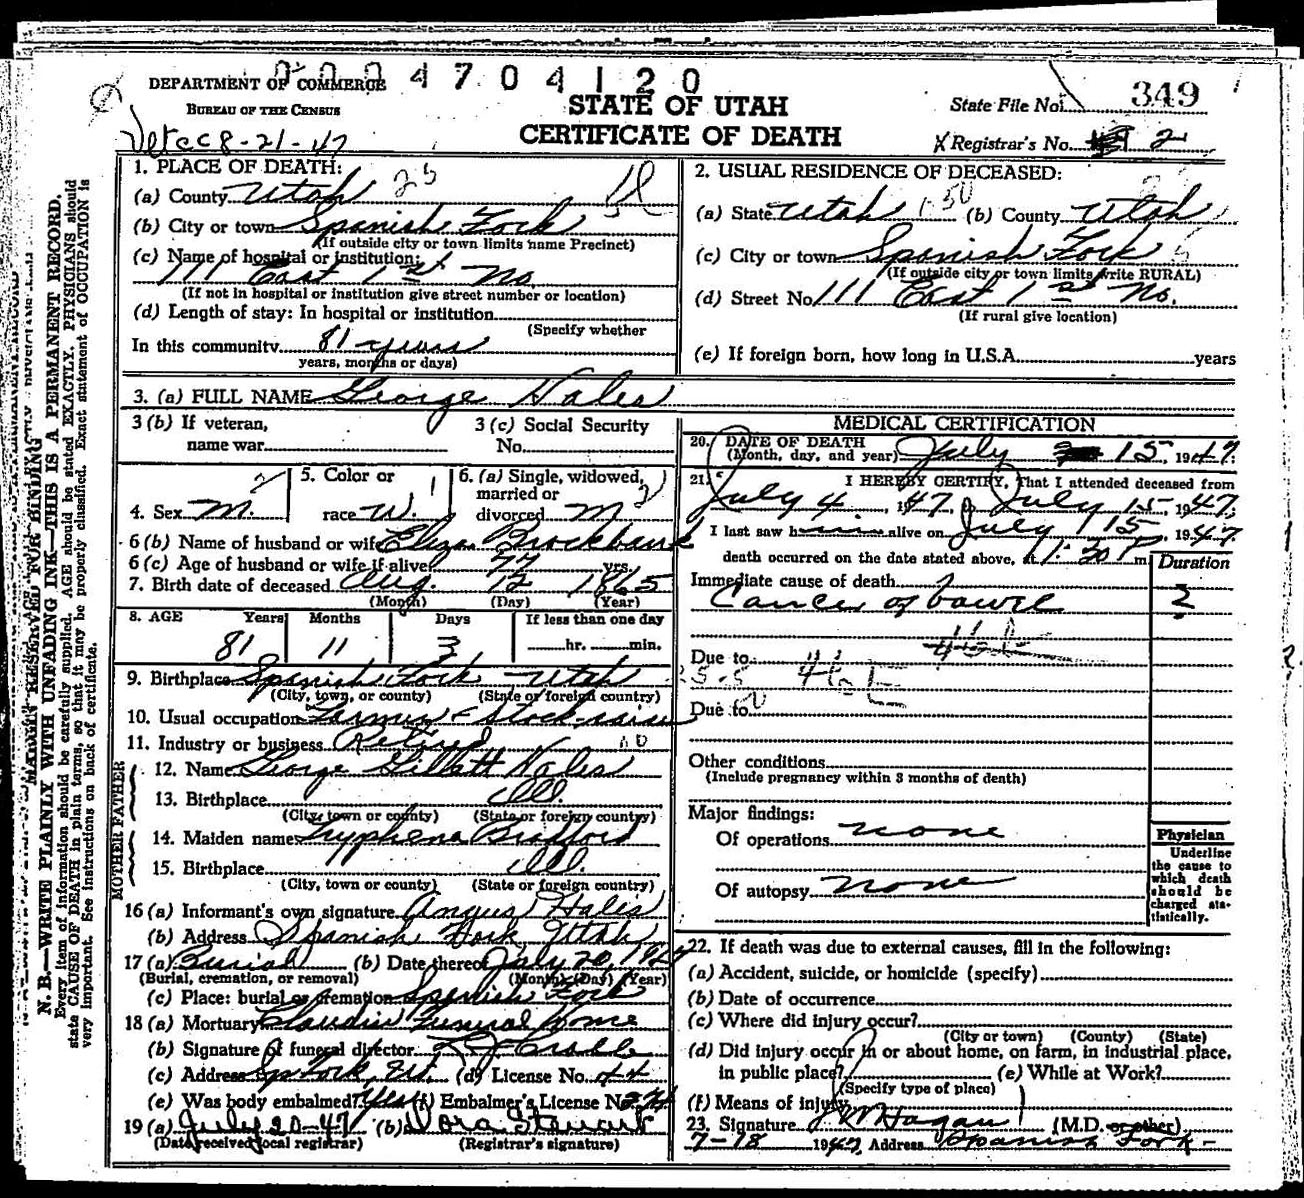 4704120
DEPARTMENT OF COMMERCE
BUREAU OF THE CENSUS
STATE OF UTAH
CERTIFICATE OF DEATH
State File No. 349
Registrar's No. 2
8-21-47
1. PLACE OF DEATH:
(a) County Utah 25
(b) City or town Spanish Fork
(If outside city or town limits name Precinct)
(c) Name of hospital or institution:
111 East 1st No.
(If not in hospital or institution give street number or location)
(d) Length of stay: In hospital or institution
(Specify whether
In this community 81 years
years, months or days)
2. USUAL RESIDENCE OF DECEASED:
(a) State Utah (b) County Utah
(c) City or town Spanish Fork
(If outside city or town limits write RURAL)
(d) Street No. 111 East 1st No.
(If rural give location)
(e) If foreign born, how long in U.S.A. years
3. (a) FULL NAME George Hales
3 (b) If veteran,
name war
3 (c) Social Security
No.
4. Sex M.
5. Color or
race W.
6. (a) Single, widowed,
married or
divorced M
6 (b) Name of husband or wife Eliza Brockbank
6 (c) Age of husband or wife if alive 77 yrs.
7. Birth date of deceased Aug. 12 1865
(Month) (Day) (Year)
8. AGE Years Months Days If less than one day
81 11 3 hr. min.
9. Birthplace Spanish Fork Utah
(City, town, or county) (State or foreign country)
10. Usual occupation Farmer & Stock-raiser
11. Industry or business Retired
FATHER
12. Name George Gillett Hales
13. Birthplace Ill.
(City, town or county) (State or foreign country)
MOTHER
14. Maiden name Tryphena Bradford
15. Birthplace Ill.
(City, town or county) (State or foreign country)
16 (a) Informant's own signature Angus Hales
(b) Address Spanish Fork, Utah
17 (a) Burial (b) Date thereof July 20, 1947
(Burial, cremation, or removal) (Month) (Day) (Year)
(c) Place: burial or cremation Spanish Fork
18 (a) Mortuary Claudin Funeral Home
(b) Signature of funeral director
(c) Address Sp Fork, Ut. (d) License No. 44
(e) Was body embalmed? Yes (f) Embalmer's License No.
19 (a) July 20-47 (b) Dora Stewart
(Date received local registrar) (Registrar's signature)
MEDICAL CERTIFICATION
20. DATE OF DEATH
(Month, day, and year) July 15, 1947.
21. I HEREBY CERTIFY, That I attended deceased from
July 4, 1947, to July 15, 1947.
I last saw him alive on July 15, 1947
death occurred on the date stated above, at 1:30 P m
Duration
Immediate cause of death
Cancer of bowel ?
Due to
Due to
Other conditions
(Include pregnancy within 3 months of death)
Major findings:
Of operations none
Of autopsy none
Physician
Underline
the cause to
which death
should be
charged sta-
tistically.
22. If death was due to external causes, fill in the following:
(a) Accident, suicide, or homicide (specify)
(b) Date of occurrence
(c) Where did injury occur?
(City or town) (County) (State)
(d) Did injury occur in or about home, on farm, in industrial place,
in public place? (e) While at Work?
(Specify type of place)
(f) Means of injury
23. Signature J M Hagan (M.D. or other)
7-18 1947, Address Spanish Fork
MARGIN RESERVED FOR BINDING
N. B.—WRITE PLAINLY WITH UNFADING INK—THIS IS A PERMANENT RECORD.
Every item of information should be carefully supplied. AGE should be stated EXACTLY. PHYSICIANS should
state CAUSE OF DEATH in plain terms, so that it may be properly classified. Exact statement of OCCUPATION is
very important. See instructions on back of certificate.